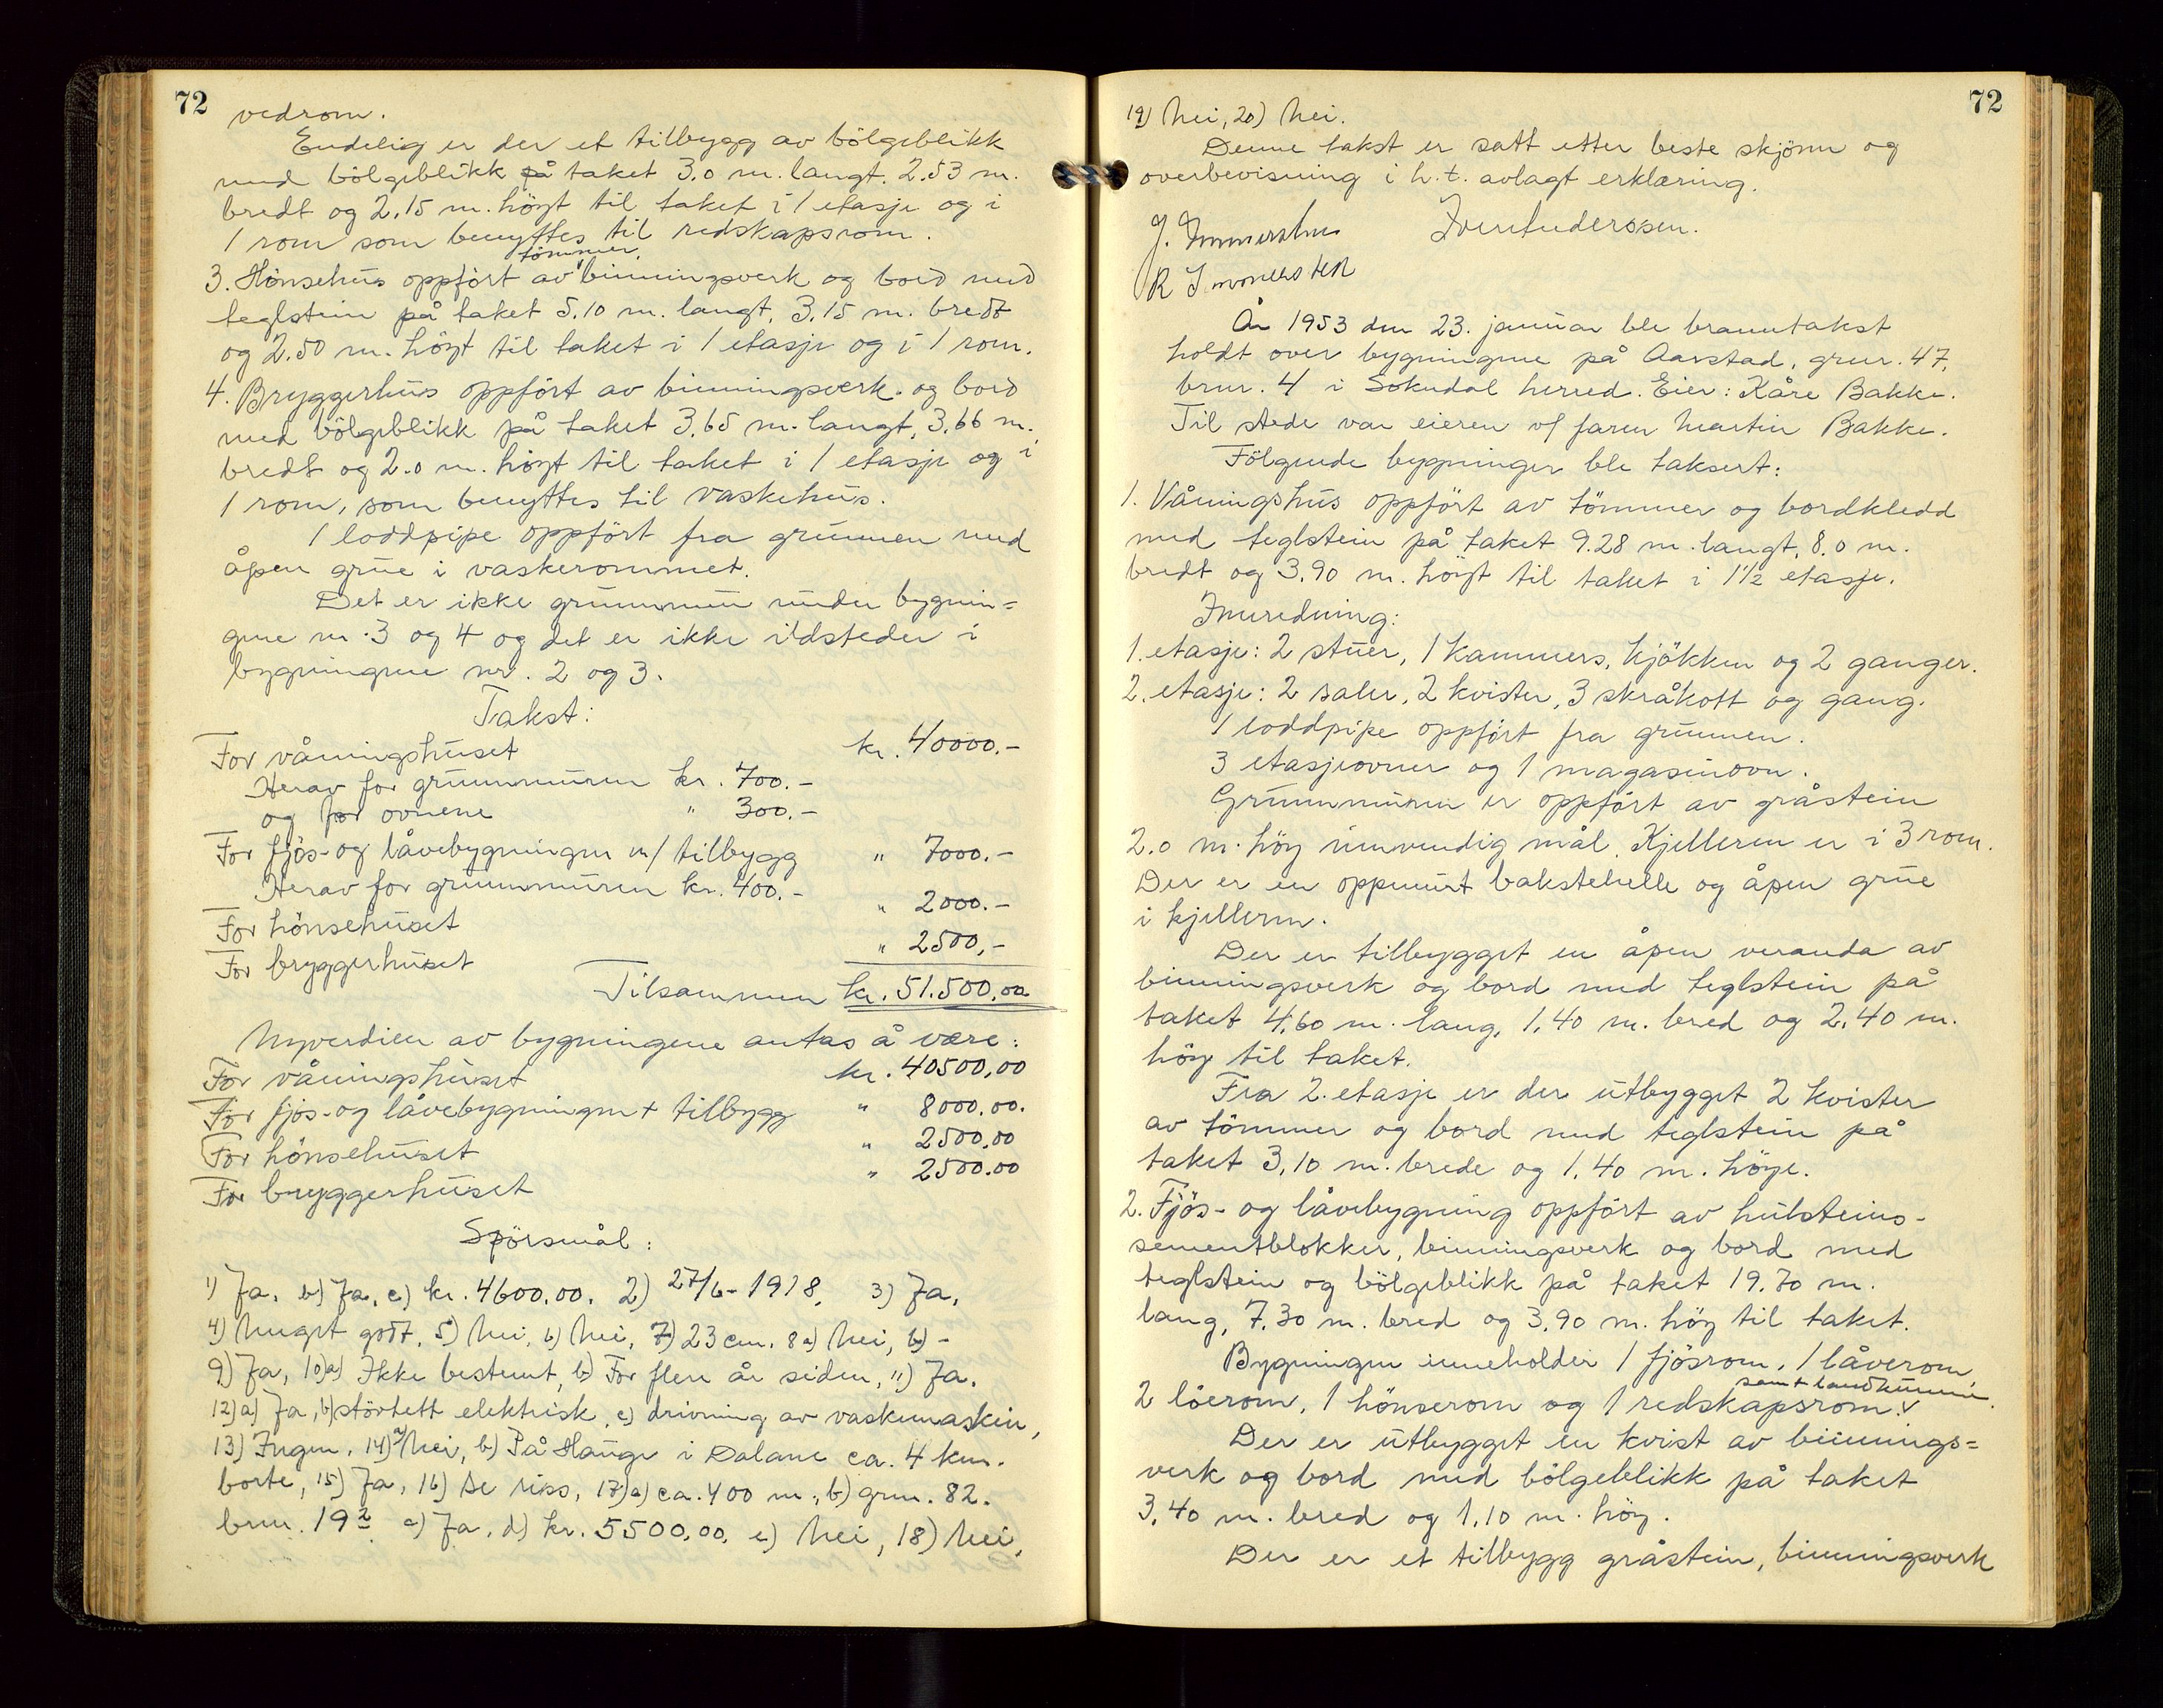 72
vedrom.
Endelig er der et tilbygg av bölgeblikk
med bölgeblikk på taket 3.0 m. langt. 2.53 m.
bredt og 2.15 m. höyt til taket i 1 etasje og i
1 rom som benyttes til redskapsrom.
tömmer,
3. Hönsehus oppfört av binningsverk og bord med
teglstein på taket 5.10 m. langt, 3.15 m. bredt
og 2.50 m. höyt til taket i 1 etasje og i 1 rom.
4. Bryggerhus oppfört av binningsverk og bord
med bölgeblikk på taket 3.65 m. langt, 3.66 m.
bredt og 2.0 m. höyt til taket i 1 etasje og i
1 rom, som benyttes til vaskehus.
1 loddpipe oppfört fra grunnen med
åpen grue i vaskerommet.
Det er ikke grunnmur under bygnin=
gene nr. 3 og 4 og det er ikke ildsteder i
bygningene nr. 2 og 3.
Takst:
For våningshuset kr. 40000.-
Herav for grunnmuren kr. 700.-
og for ovnene " 300.-
For fjös- og låvebygningen m/ tilbygg " 7000.-
Herav for grunnmuren kr. 400.-
For hönsehuset " 2000.-
For bryggerhuset " 2500,-
Tilsammen kr. 51.500,00
Nyverdien av bygningene antas å være:
For våningshuset kr. 40500,00
For fjös- og låvebygningen + tilbygg " 8000.00.
For hönsehuset " 2500,00
For bryggerhuset " 2500.00
Spörsmål:
1) Ja, b) Ja, c) kr. 4600,00. 2) 27/6-1918, 3) Ja,
4) Meget godt, 5) Nei, 6) Nei, 7) 23 cm, 8 a) Nei, b) -
9) Ja, 10) a) Ikke bestemt, b) For flere år siden, 11) Ja.
12) a) Ja, b) störtett elektrisk, c) drivning av vaskemaskin,
13) Ingen, 14) a) Nei, b) På Hauge i Dalane ca. 4 km.
borte, 15) Ja, 16) Se riss, 17) a) ca. 400 m., b) grnr. 82.
brnr. 19 2 c) Ja, d) kr. 5500,00, e) Nei, 18) Nei,
72
19) Nei, 20) Nei.
Denne takst er satt etter beste skjönn og
overbevisning i h.t. avlagt erklæring.
År 1953 den 23. januar ble branntakst
holdt over bygningene på Aarstad, grnr. 47,
brnr. 4 i Sokndal herred. Eier: Kåre Bakke.
Til stede var eieren v/ faren Martin Bakke.
Fölgende bygninger ble taksert:
1. Våningshus oppfört av tömmer og bordkledd
med teglstein på taket 9.28 m. langt, 8.0 m.
bredt og 3.90 m. höyt til taket i 1 1/2 etasje.
Innredning:
1. etasje: 2 stuer, 1 kammers, kjökken og 2 ganger.
2. etasje: 2 saler, 2 kvister, 3 skråkott og gang.
1 loddpipe oppfört fra grunnen.
3 etasjeovner og 1 magasinovn.
Grunnmuren er oppfört av gråstein
2.0 m. höy innvendig mål. Kjelleren er i 3 rom.
Der er en oppmurt bakstehelle og åpen grue
i kjelleren.
Der er tilbygget en åpen veranda av
binningsverk og bord med teglstein på
taket 4,60 m. lang, 1,40 m. bred og 2,40 m.
höy til taket.
Fra 2. etasje er der utbygget 2 kvister
av tömmer og bord med teglstein på
taket 3,10 m. brede og 1.40 m. höye.
2. Fjös- og låvebygning oppfört av hulsteins-
sementblokker, binningsverk og bord med
teglstein og bölgeblikk på taket 19.70 m.
lang, 7.30 m. bred og 3,90 m. höy til taket.
Bygningen inneholder 1 fjösrom, 1 låverom,
samt landkummer.
2 löerom, 1 hönserom og 1 redskapsrom.
Der er utbygget en kvist av binnings=
verk og bord med bölgeblikk på taket
3,40 m. bred og 1,10 m. höy.
Der er et tilbygg gråstein, binningsverk